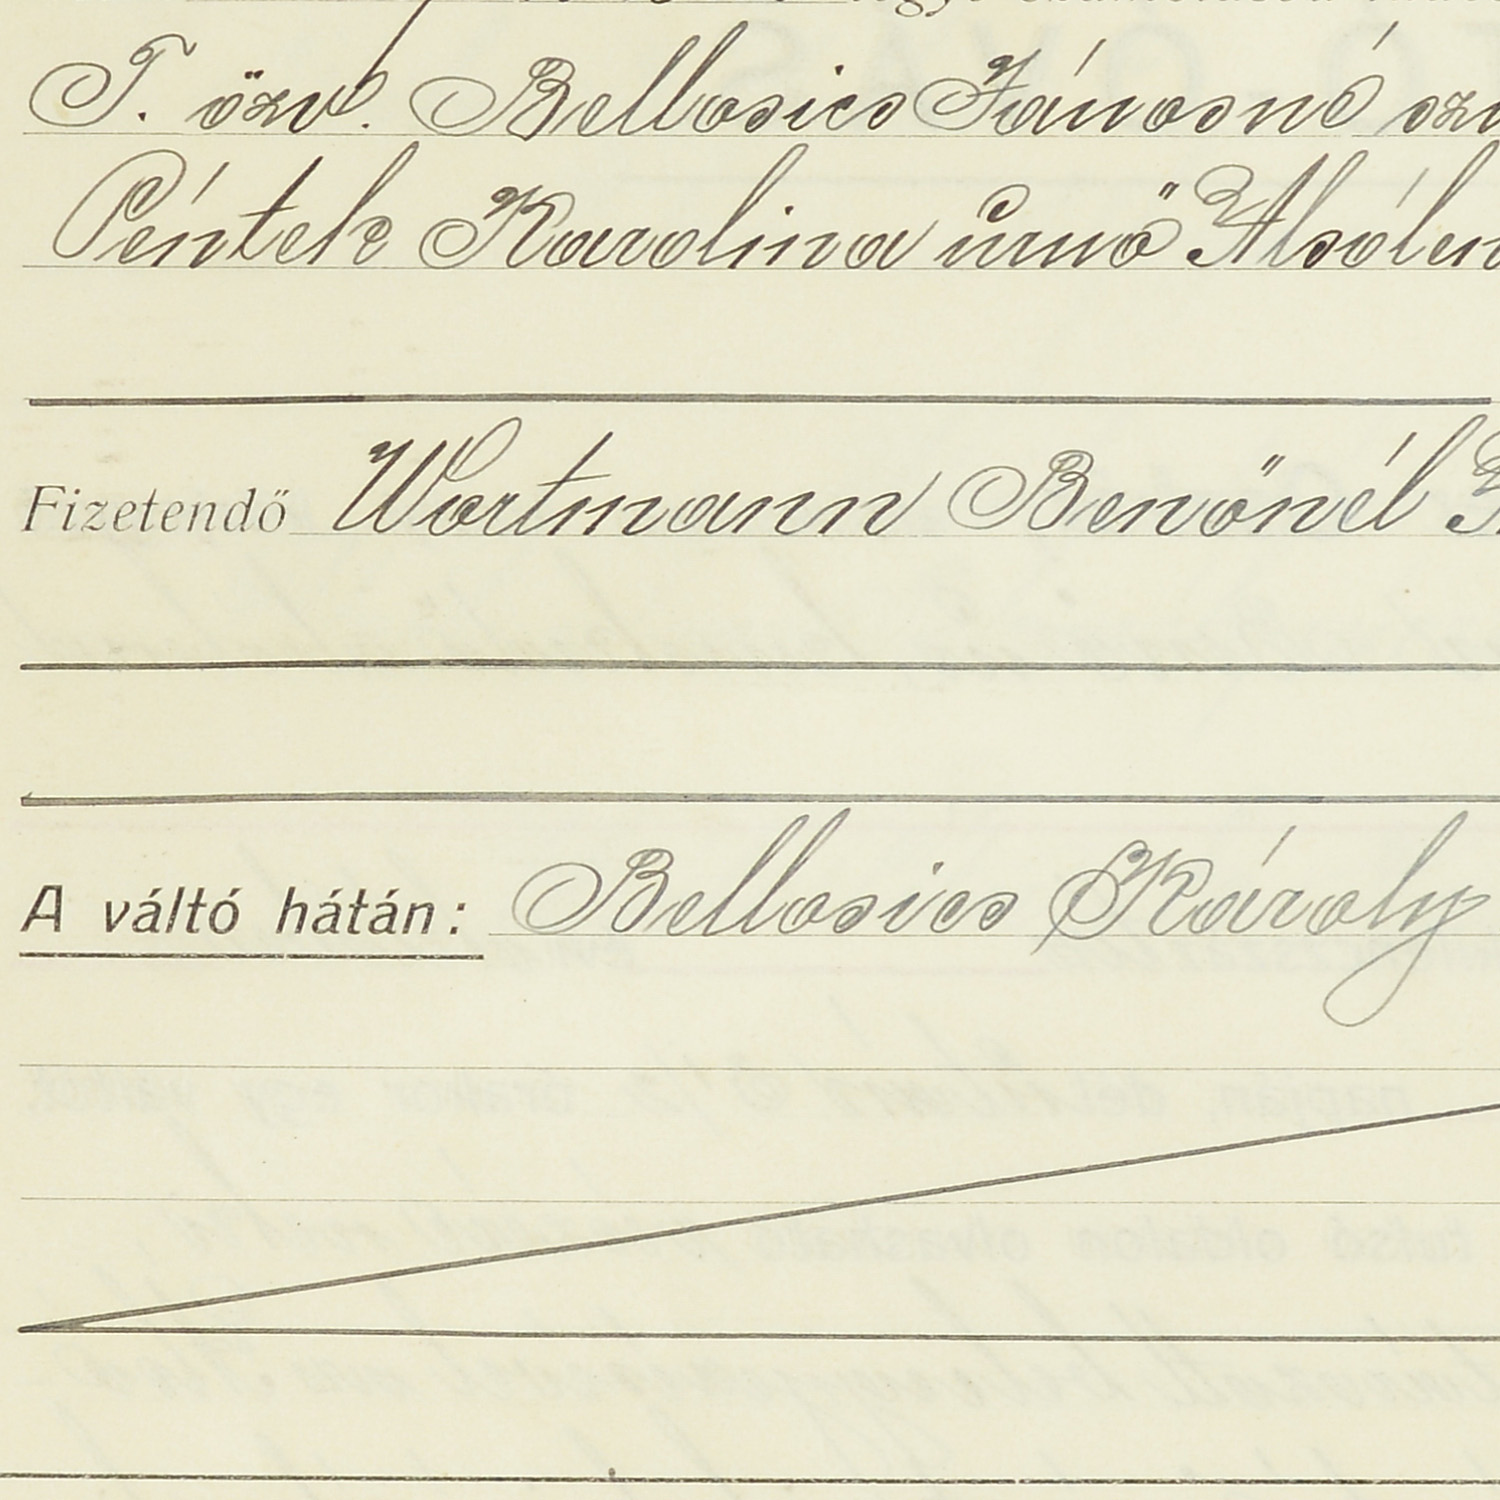 T. özv. Bellosics Jánosné
Péntek Karolina úrnő
Fizetendő Wortmann Benőnél
A váltó hátán: Bellosics Károly